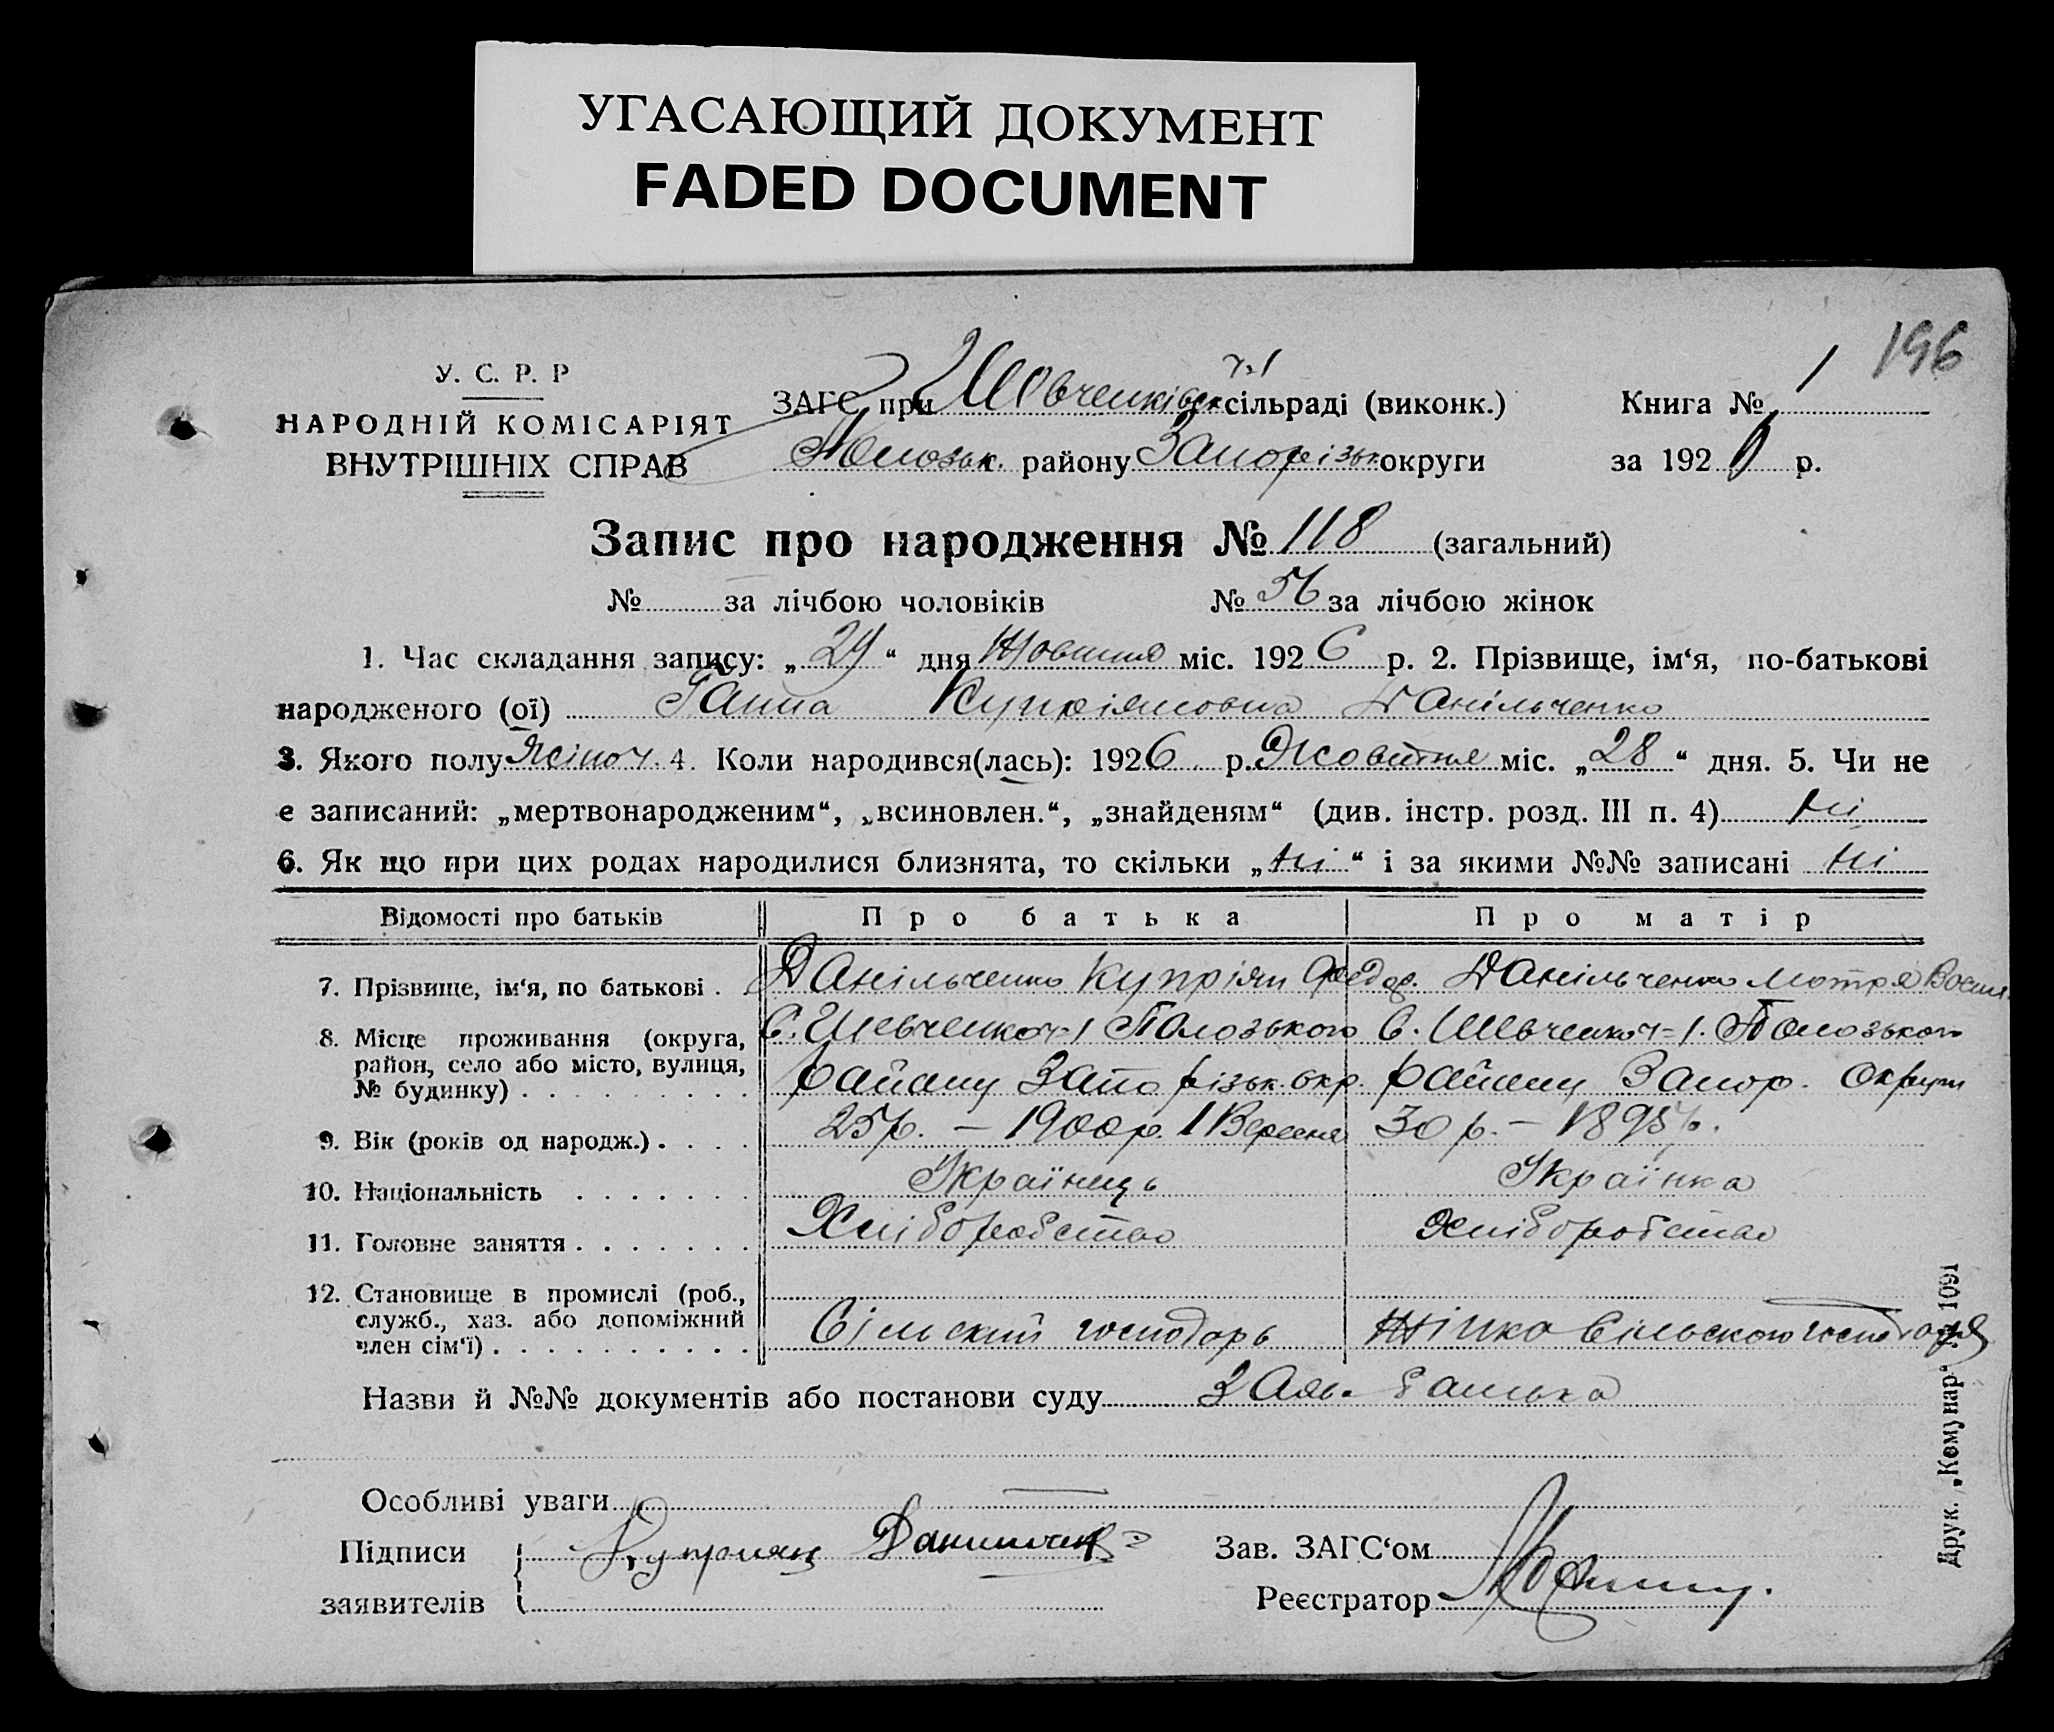 УГАСАЮЩИЙ ДОКУМЕНТ
FADED DOCUMENT
196
У. С. Р. Р
НАРОДНІЙ КОМІСАРІЯТ
ВНУТРІШНІХ СПРАВ
ЗАГС при Шевченківск. ч.1 сільраді (виконк.) Книга № 1
Полозьк. району Запорізьк. округи за 1926 р.
Запис про народження № 118 (загальний)
№ за лічбою чоловіків № 56 за лічбою жінок
1. Час складання запису: „29“ дня Жовтня міс. 1926 р. 2. Прізвище, ім‘я, по-батькові
народженого (ої) Ганна Купріяновна Данільченко
3. Якого полу Жіноч. 4. Коли народився(лась): 1926 р. Жовтня міс. „28“ дня. 5. Чи не
є записаний: „мертвонародженим“, „всиновлен.“, „знайденям“ (див. інстр. розд. III п. 4) ні
6. Як що при цих родах народилися близнята, то скільки „ні“ і за якими №№ записані ні
Відомості про батьків Про батька Про матір
7. Прізвище, ім‘я, по батькові . Данільченко Купріян Федор. Данільченко Мотря Восил.
8. Місце проживання (округа, район, село або місто, вулиця, № будинку) . С. Шевченко ч-1 Полозького С. Шевченко ч=1. Полозького
району Запорізьк. окр. району Запор. Округи
9. Вік (років од народж.) . 25р. – 1900р. 1 Вересня 30 р. – 1895р.
10. Національність . Українець Українка
11. Головне заняття . Хліборобство Хліборобство
12. Становище в промислі (роб., служб., хаз. або допоміжний член сім‘ї) . Сільский господарь Жінка Сільского господаря
Назви й №№ документів або постанови суду Заяв. батька
Особливі уваги
Підписи Куприян Зав. ЗАГС‘ом
заявителів Реєстратор
Друк. „Комунар“ № 1091